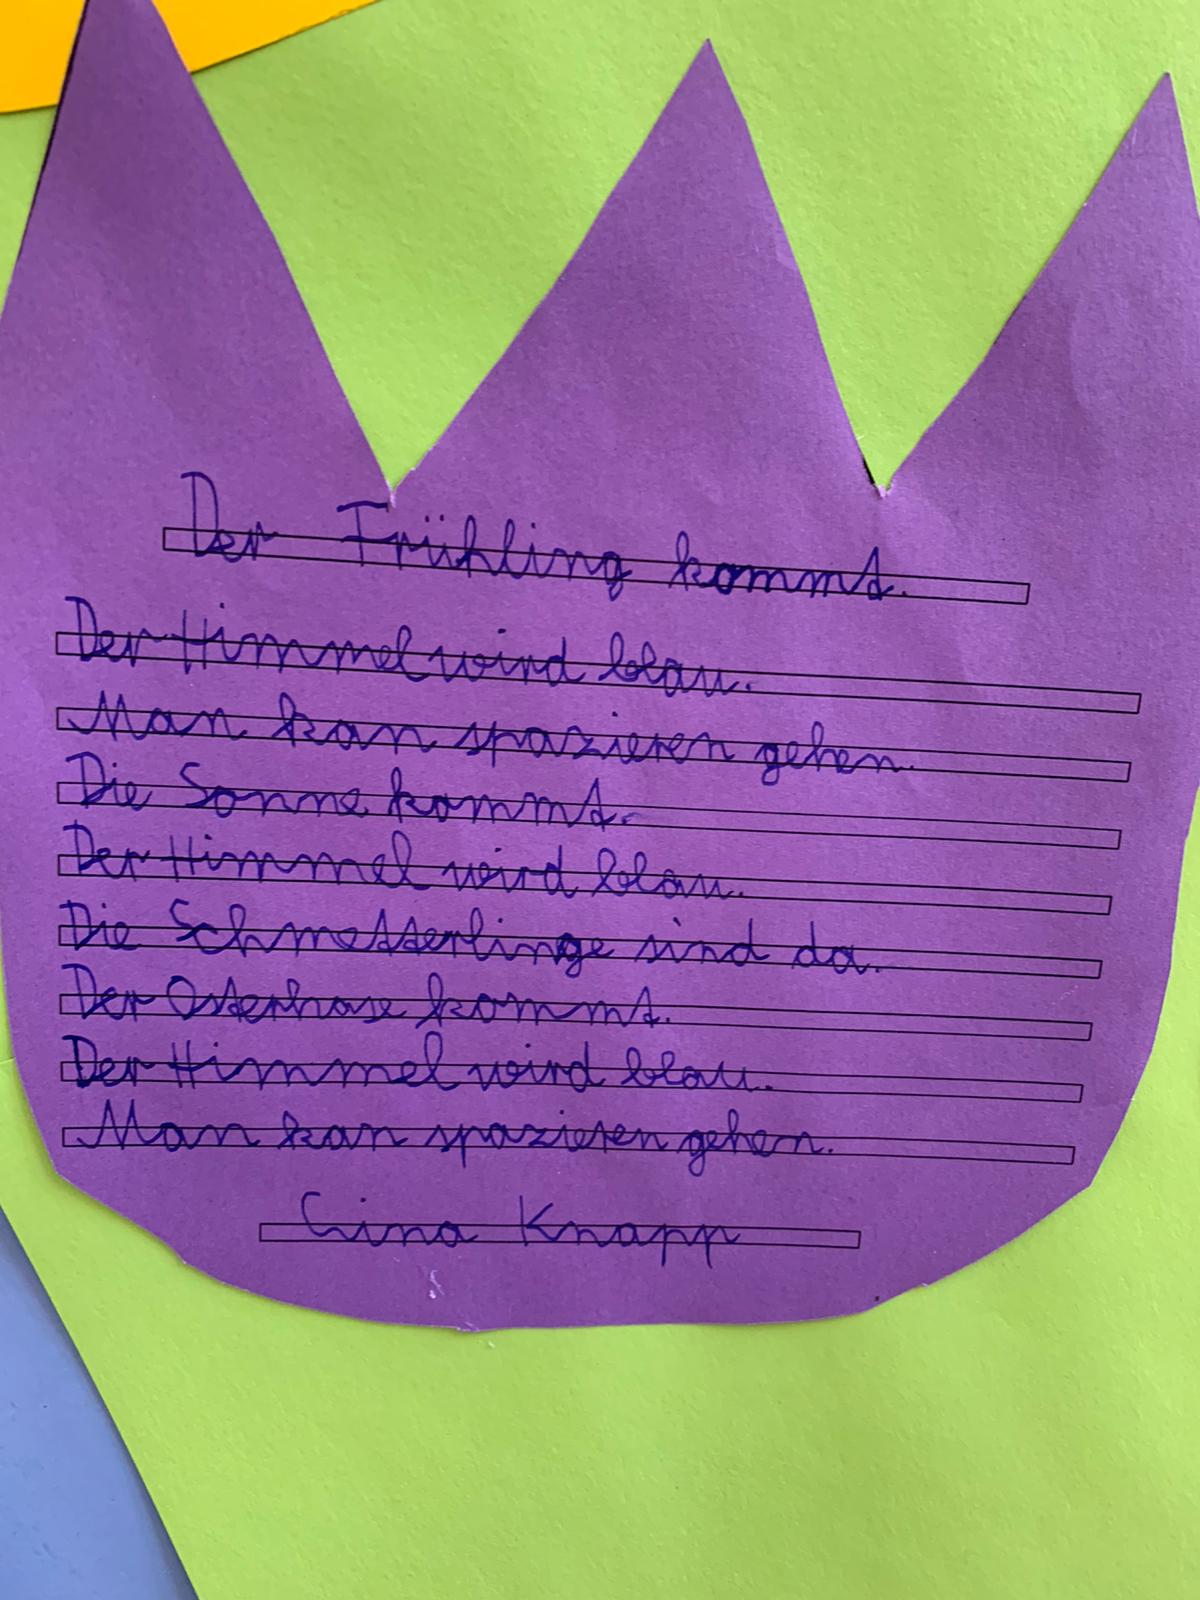 Der Frühling kommt.
Der Himmel wird blau.
Man kan spazieren gehen.
Die Sonne kommt.
Der Himmel wird blau.
Die Schmetterlinge sind da.
Der Osterhase kommt.
Der Himmel wird blau.
Man kan spazieren gehen.
Gina Knapp